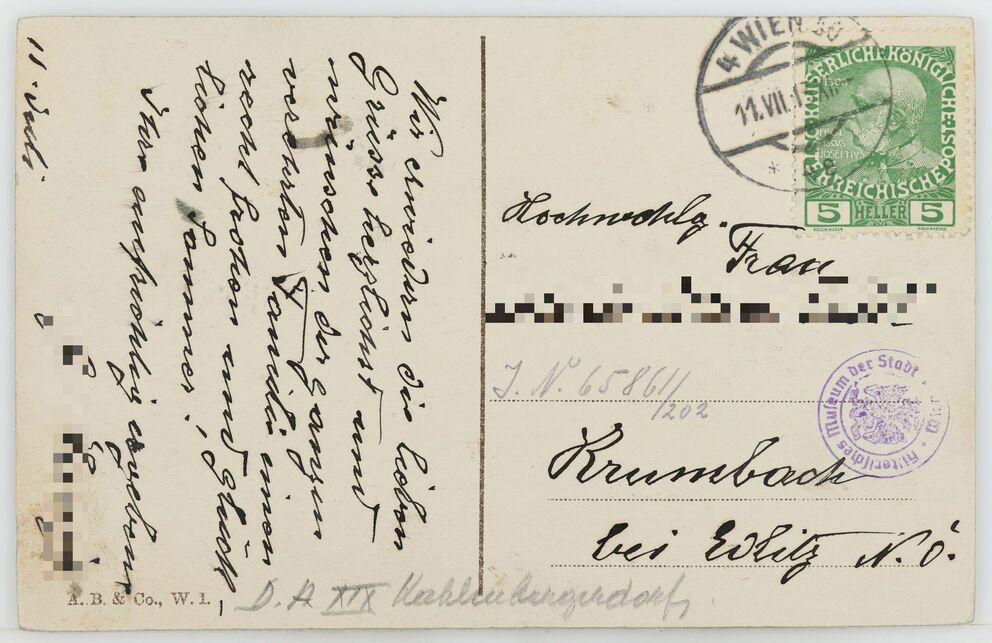 11. Juli
Wir erwiedern die lieben
Grüsse herzlichst und
wünschen der ganzen
verehrten Familie einen
recht frohen und glück-
lichen Sommer!
Ihre aufrichtig ergebene
A. B. & Co., W. I.
4 WIEN 50
11.VII.1
KAISERLICHE KÖNIGLICHE
ÖSTERREICHISCHE POST
FRANCISCVS
JOSEPHVS
5 HELLER 5
Hochwohlg.
Frau
J. N. 65861/
/202
Historisches Museum der Stadt Wien
Krumbach
bei Edlitz N. Ö.
D. A XIX Kahlenbergerdorf